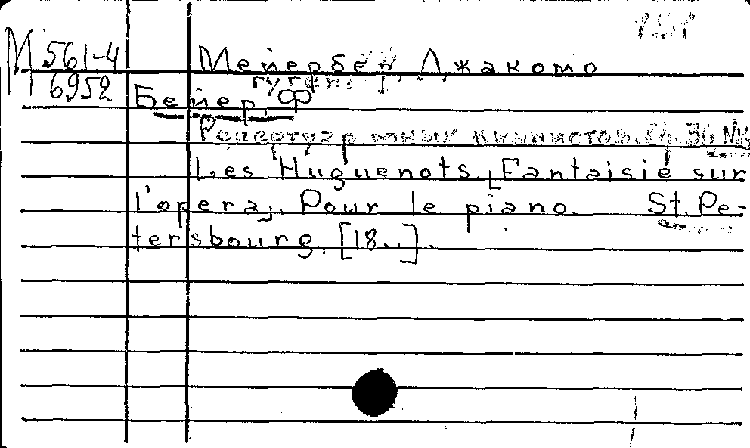 М 561-4
6952
Мейербер, Джакомо
Гугеноты
Бейер, Ф
Репертуар юных пианистов. № 36
Les Huguenots. [Fantaisie sur
l'opera]. Pour le piano. St. Pe-
tersbourg, [18..].